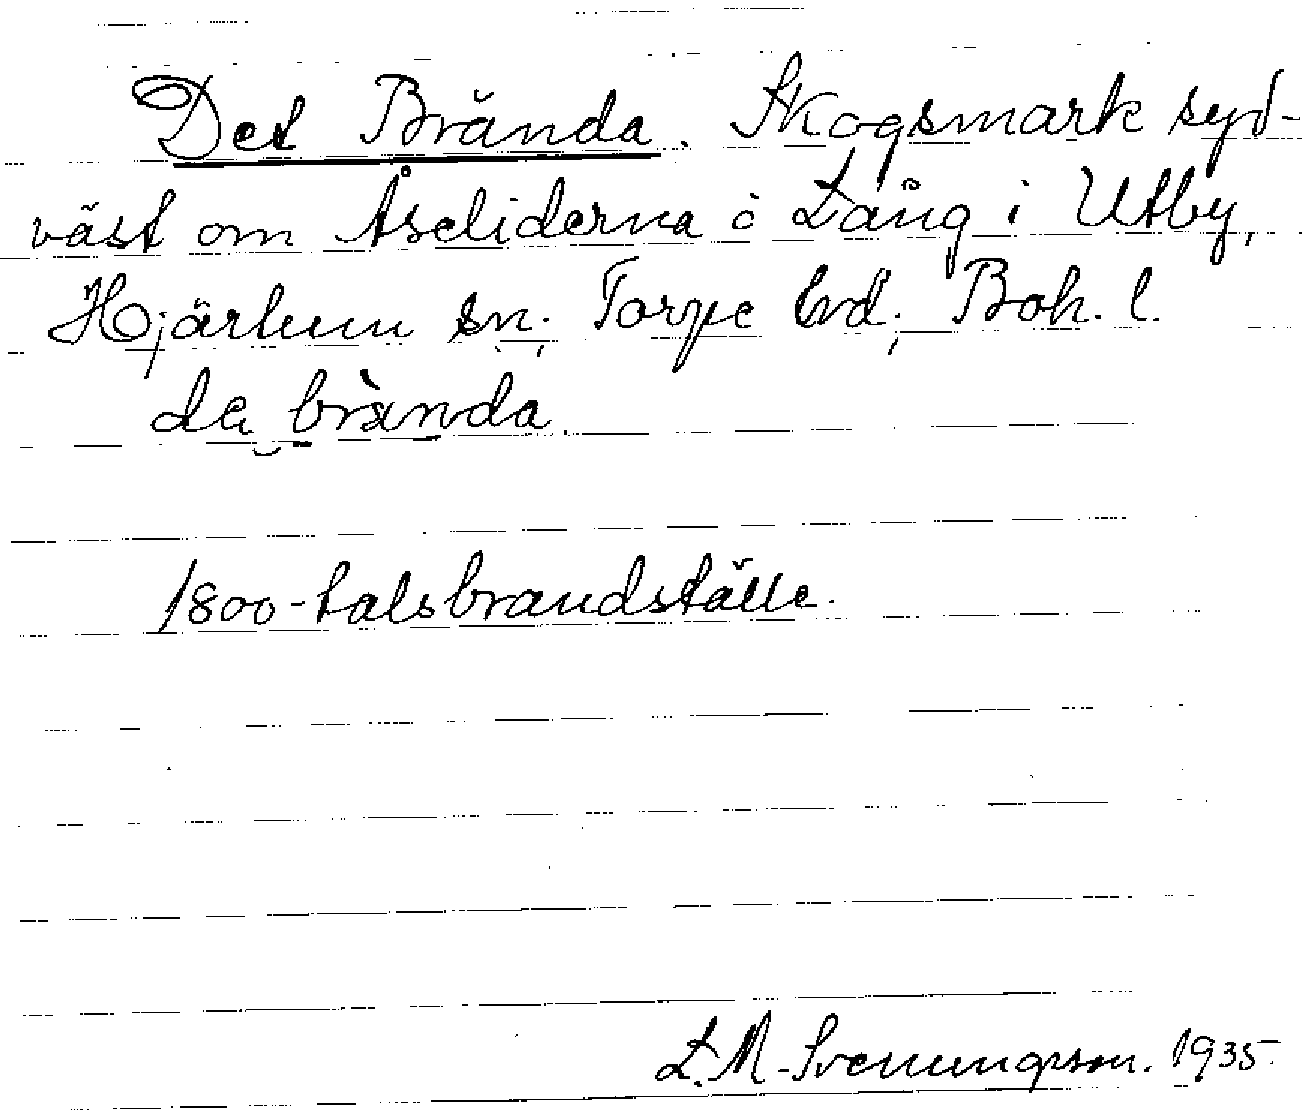 Det Brända. Skogsmark syd-
väst om Åseliderna i Lång i Utby,
Hjärtum sn, Torpe hd, Boh. l.
da brànda.
1800-talsbrandställe.
L.M. Svenungsson. 1935